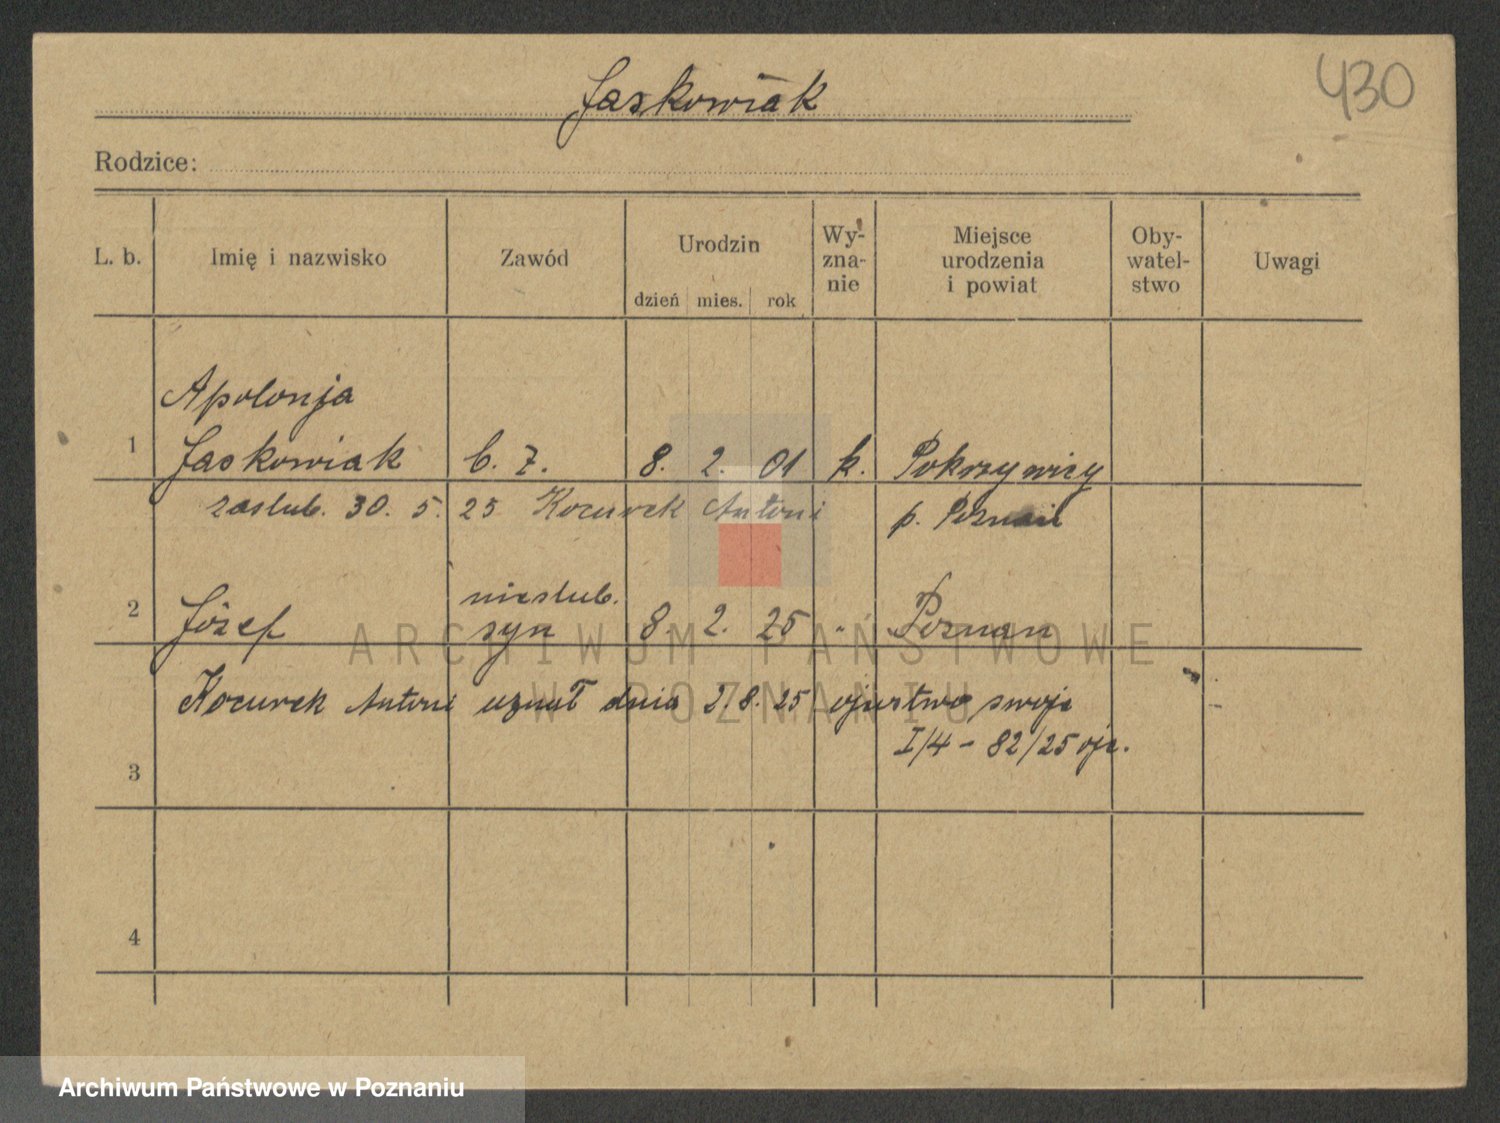 430
Jaskowiak
Rodzice:
L. b. Imię i nazwisko Zawód Urodzin dzień mies. rok Wy-zna-nie Miejsce urodzenia i powiat Oby-watel-stwo Uwagi
Apolonja
1 Jaskowiak b. z. 8. 2. 01 k. Pokrzywicy
zaślub. 30. 5. 25 Kocurek Antoni p. Poznań
nieślub.
2 Józef syn 8. 2. 25 " Poznan
ARCHIWUM PAŃSTWOWE
W POZNANIU
Kocurek Antoni uznał dnia 2. 8. 25 ojcostwo swoje
I/4 - 82/25 ojc.
3
4
Archiwum Państwowe w Poznaniu